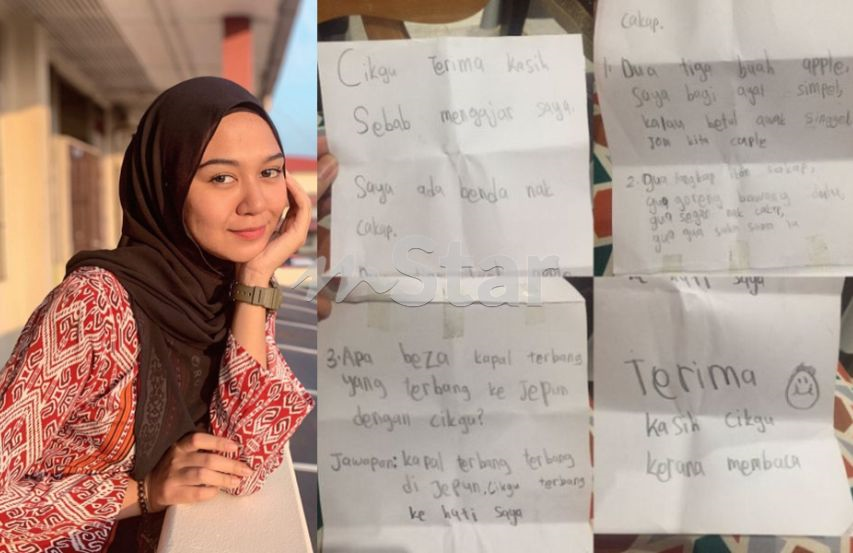 Cikgu Terima kasih
Sebab mengajar saya.
Saya ada benda nak
cakap.
cakap.
1. Dua tiga buah apple,
saya bagi ayat simpel,
kalau betul awak singgel
jom kita cuple
2. gua tangkap ikan sakap,
gua goreng bawang
gua segan nak cakap,
gua gua suka sama lu
3. Apa beza kapal terbang
yang terbang ke Jepun
dengan cikgu?
Jawapan: kapal terbang terbang
di Jepun. Cikgu terbang
ke hati saya
hati saya
Terima
kasih cikgu
kerana membaca
mStar